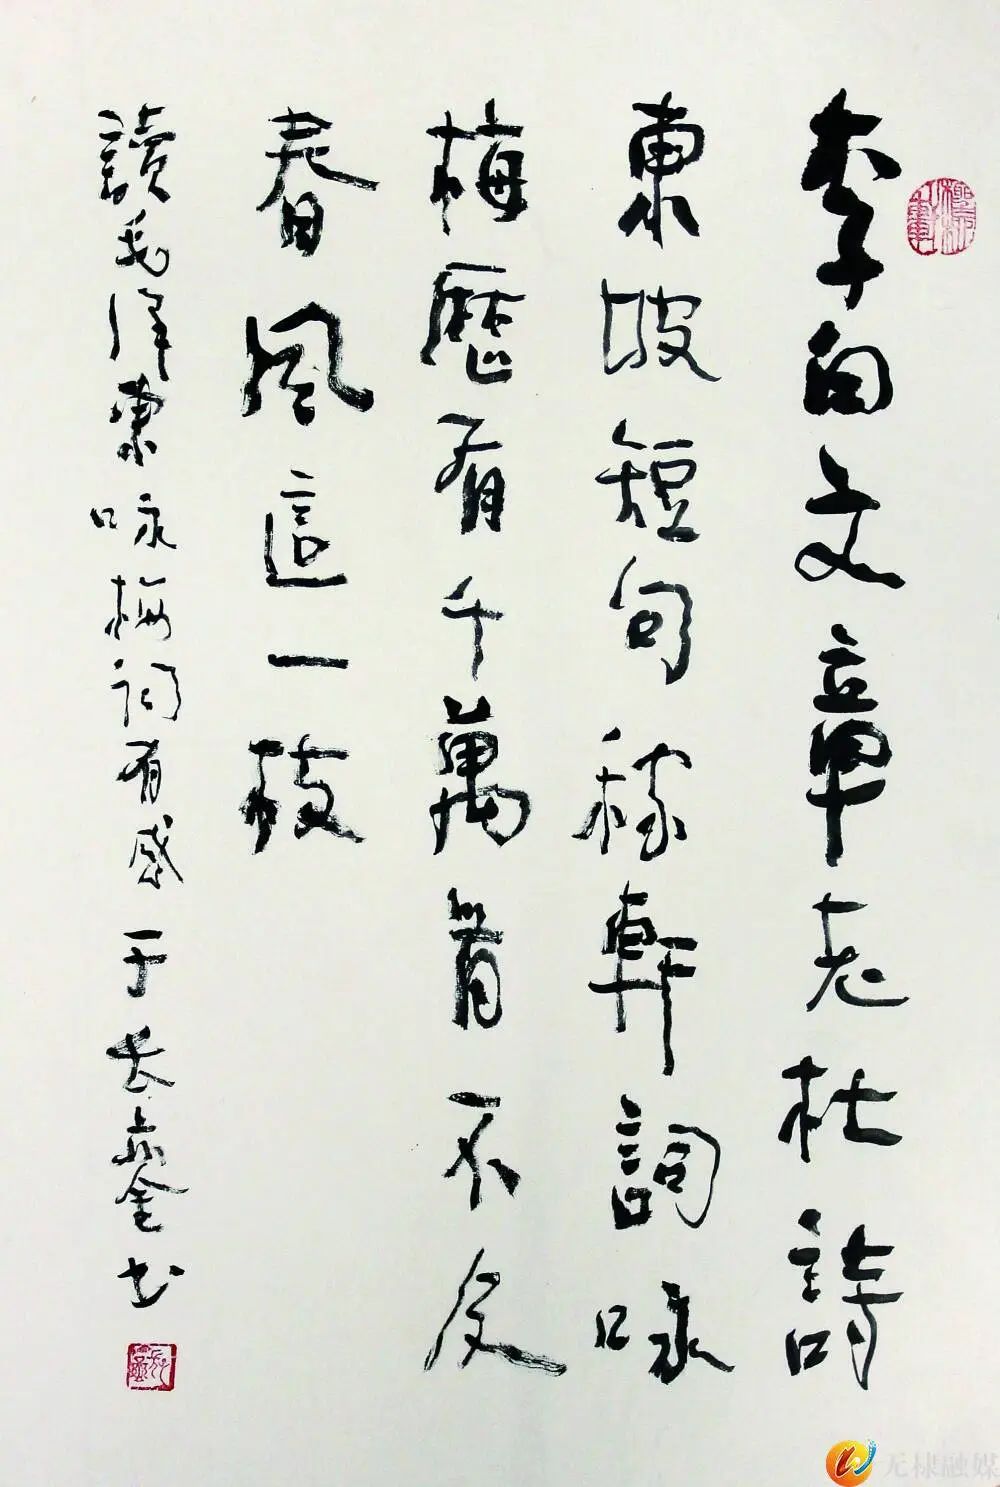 李白文章老杜詩
東坡短句稼軒詞咏
梅歷有千萬首不及
春風這一枝
讀毛澤東咏梅詞有感于长銮书
无棣融媒